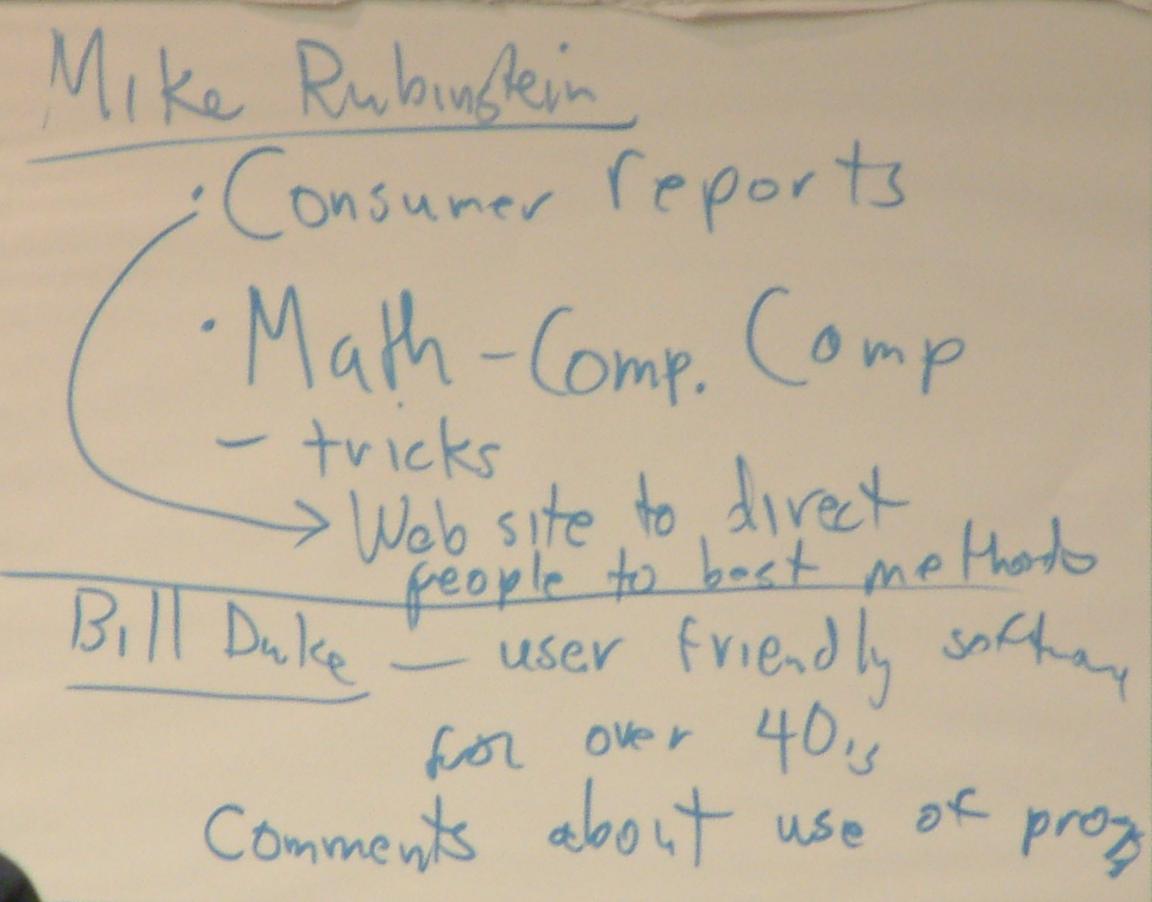 Mike Rubinstein
· Consumer reports
· Math - Comp. Comp
- tricks
→ Web site to direct
people to best methods
Bill Duke — user friendly
for over 40's
Comments about use of